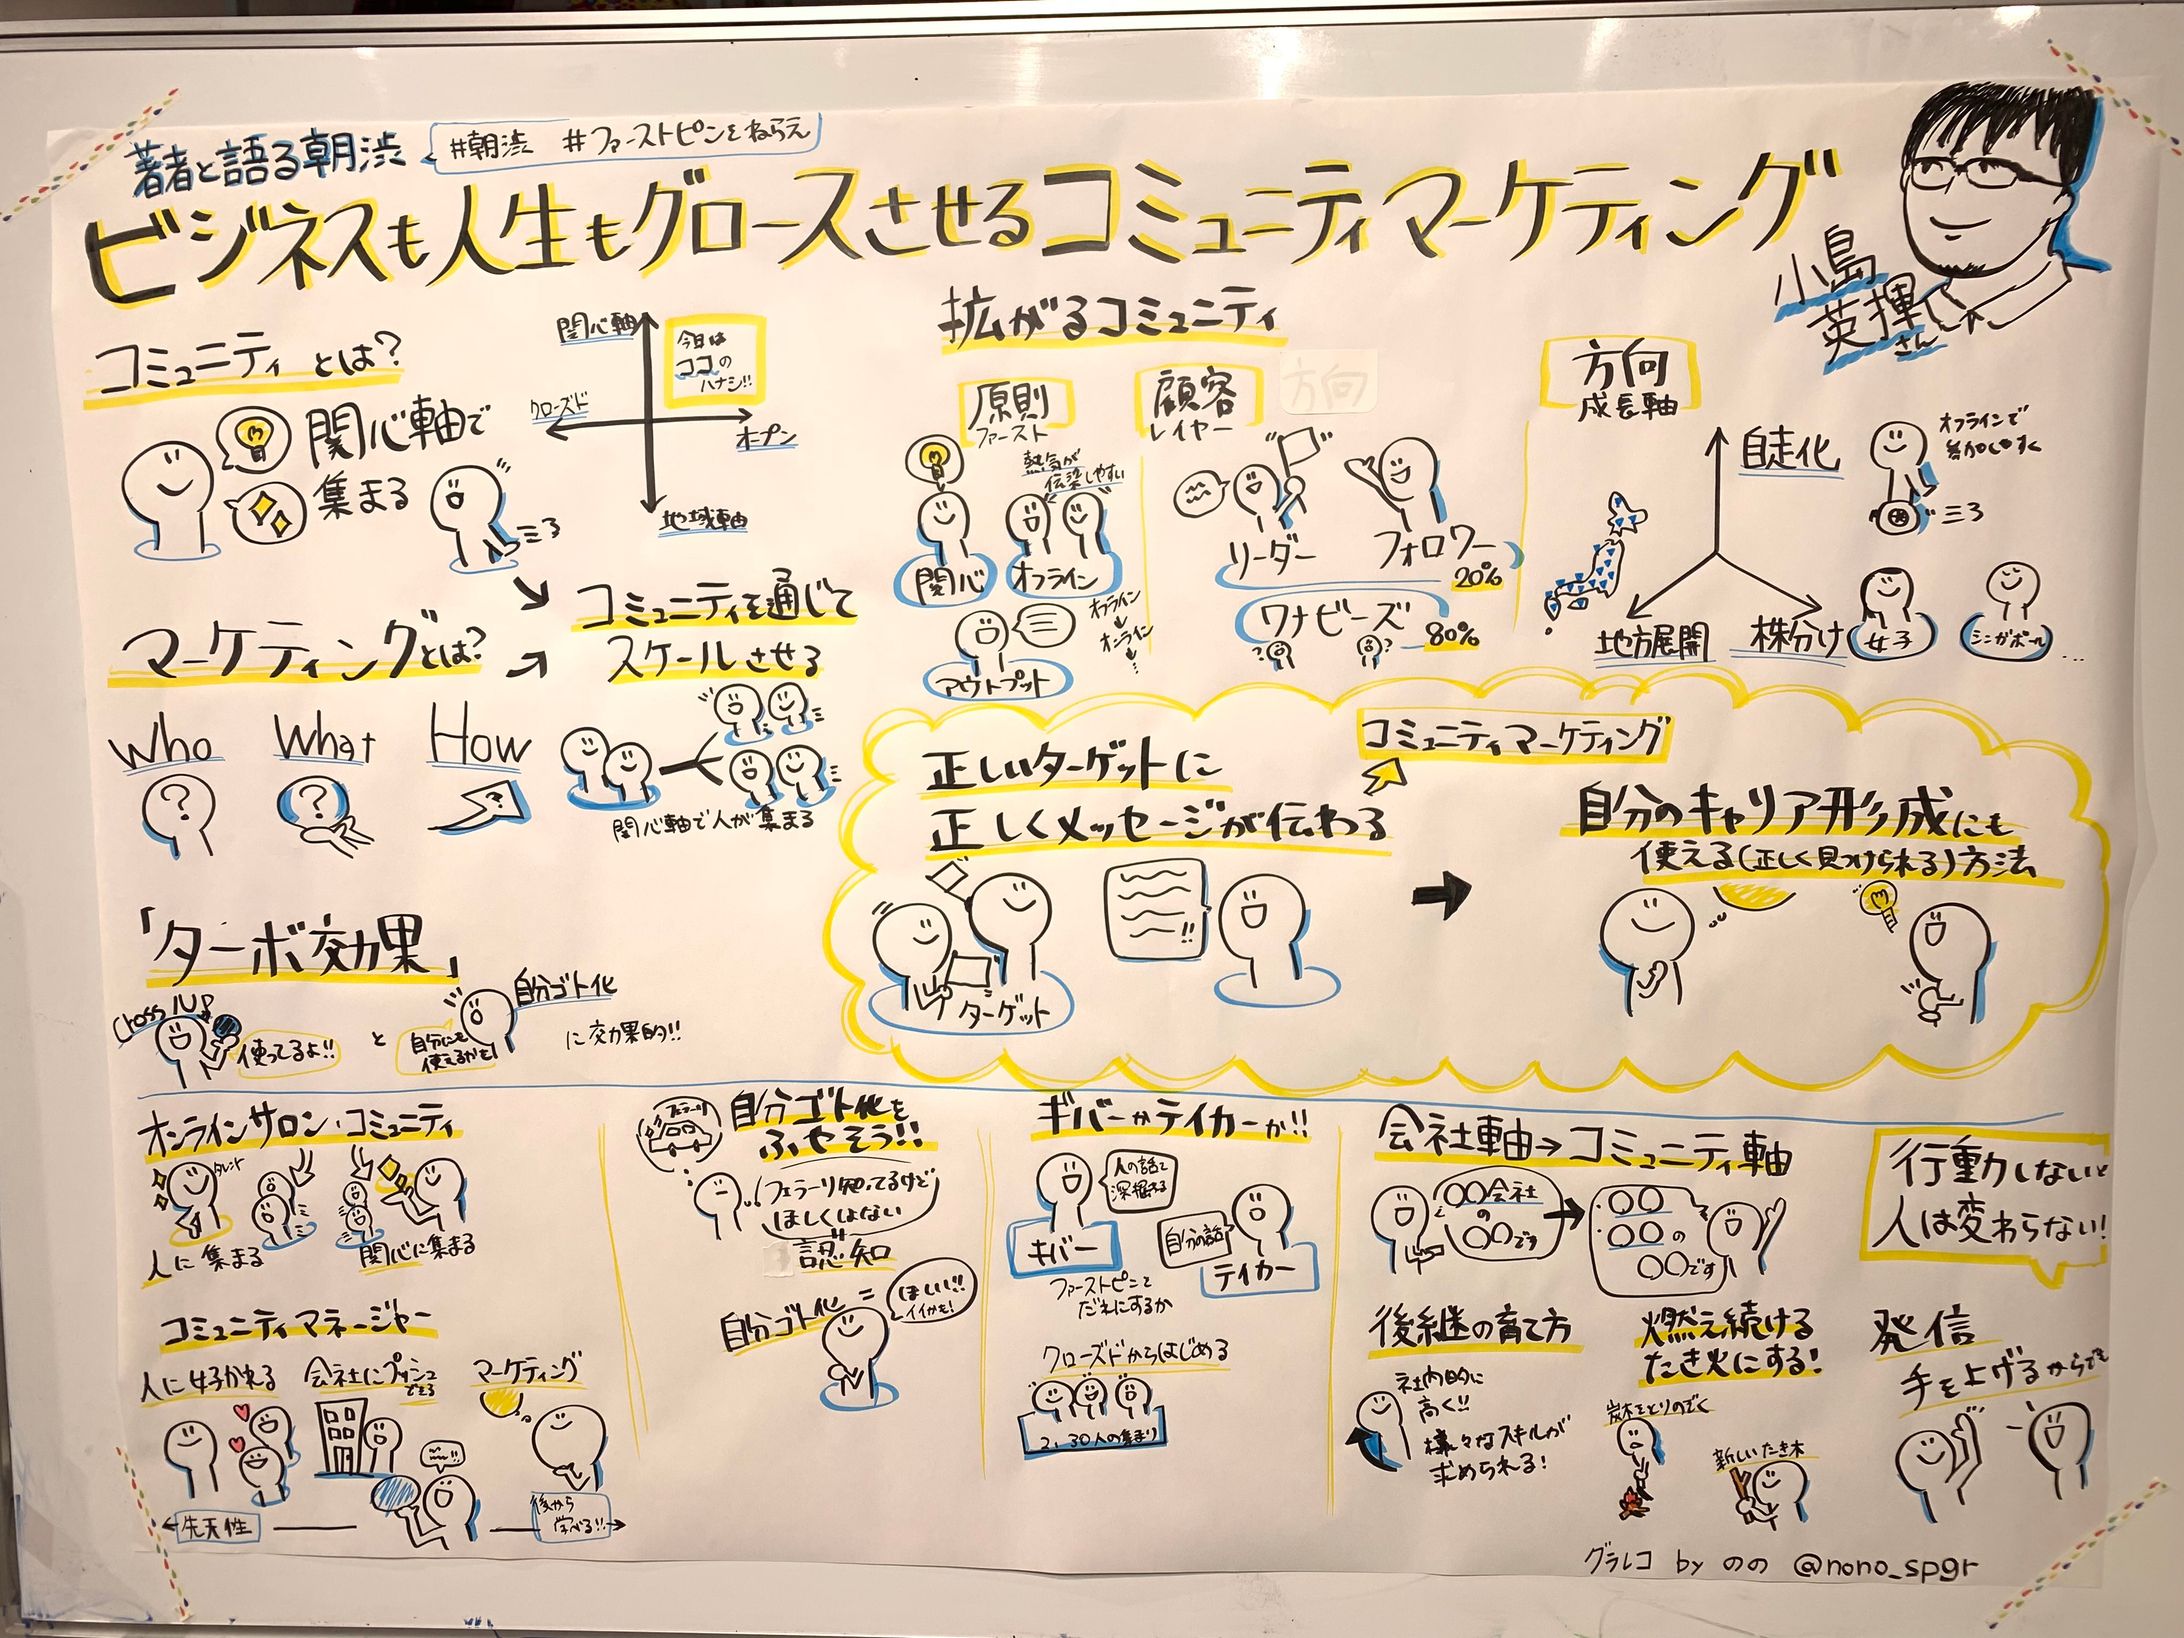 著者と語る朝渋
#朝渋 #ファーストピンをねらえ
ビジネスも人生もグロースさせるコミュニティマーケティング
小島
英揮さん
コミュニティとは?
関心軸で
集まる
関心軸
今日は
ココの
ハナシ!!
クローズド
オープン
地域軸
マーケティングとは?
コミュニティを通じて
スケールさせる
Who
What
How
?
?
?
関心軸で人が集まる
「ターボ効果」
Cross/Up
使ってるよ!!
と
自分にも
使えるかも!
自分ゴト化
に効果的!!
拡がるコミュニティ
原則
ファースト
熱気が
伝染しやすい
関心
オフライン
アウトプット
オフライン
オンライン
顧客
レイヤー
方向
リーダー
フォロワー
20%
ワナビーズ
80%
方向
成長軸
自走化
オフラインで
地方展開
株分け
女子
コミュニティマーケティング
正しいターゲットに
正しくメッセージが伝わる
ターゲット
自分のキャリア形成にも
使える(正しく見つけられる)方法
オンラインサロン・コミュニティ
タレント
人に集まる
関心に集まる
コミュニティマネージャー
人に好かれる
会社にプッシュ
できる
マーケティング
先天性
後から
学べる!!
フェラーリ
自分ゴト化を
ふやそう!!
フェラーリ知ってるけど
ほしくはない
認知
自分ゴト化=
ほしい!!
イイかも!
ギバーかテイカーか!!
人の話を
深掘る
ギバー
自分の話
テイカー
ファーストピンを
だれにするか
クローズドからはじめる
2,30人の集まり
会社軸→コミュニティ軸
〇〇会社
の
〇〇です
・〇〇
・〇〇の
〇〇です
行動しないと
人は変わらない!
後継の育て方
社内的に
高く!!
様々なスキルが
求められる!
燃え続ける
たき火にする!
炭木をとりのぞく
新しいたき木
発信
手を上げるからでも
グラレコ by のの @nono_spgr